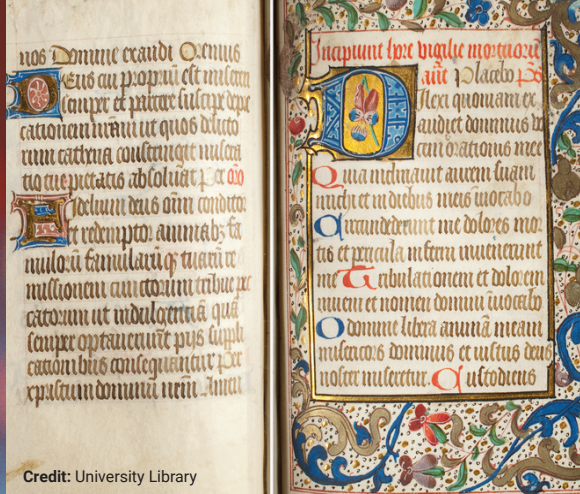 nos Domine exaudi Oremus
Deus cui propriū est misereri
semper et parcere suscipe depre
cationem nr̄am ut quos delicto
rum cathena constringit misera
tio tue pietatis absoluat Per oro
Fidelium deus oīm conditor
et redemptor animabꝫ fa
mulorū famularūqꝫ tuarū re
missionem cunctorum tribue pec
catorum ut indulgentiā quā
semper optauerunt pijs suppli
cationibus consequantur Per
xpristum dominū nr̄m Amen
Incipiunt hore vigilie mortuorū
añt Placebo p̄s
Dilexi quoniam ex
audiet dominus vo
cem orationis mee
Quia inclinauit aurem suam
michi et in diebus meis inuocabo
Circumdederunt me dolores mor
tis et pericula inferni inuenerunt
me Tribulationem et dolorem
inueni et nomen domini inuocabi
O domine libera animā meam
misericors dominus et iustus deus
noster miseretur Custodiens
Credit: University Library